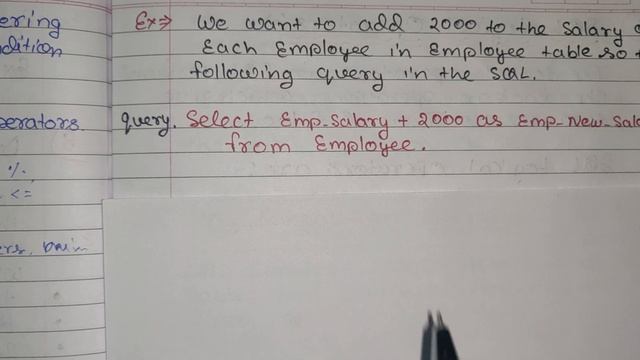 ering
dition
Ex⇒ We want to add 2000 to the Salary
Each Employee in Employee table so
following query in the SQL.
perators.
query. Select Emp_Salary + 2000 as Emp_New_Sal
from Employee.
%
<=